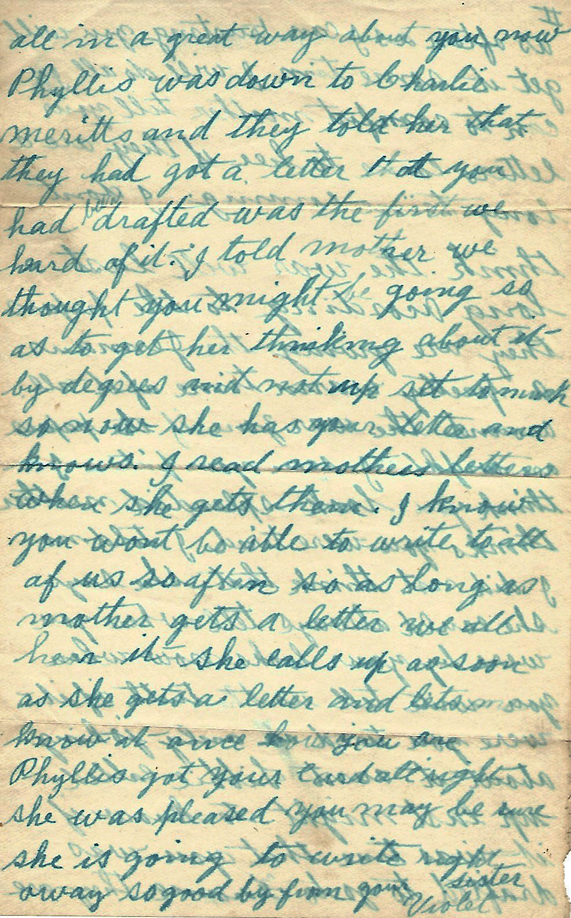 II
all in a great way about you now
Phyllis was down to Charlie
meritts and they told her that
they had got a letter that you
had been drafted was the first we
heard of it. I told mother we
thought you might be going so
as to get her thinking about it
by degrees and not up set to much
so now she has your letter and
knows. I read mothers letters
when she gets them. I know
you wont be able to write to all
of us so as long as
mother gets a letter we all
hear it she calls up as soon
as she gets a letter and lets
know at once how you are
Phyllis got your card all right
she was pleased you may be sure
she is going to write right
away so good by from your sister
Violet